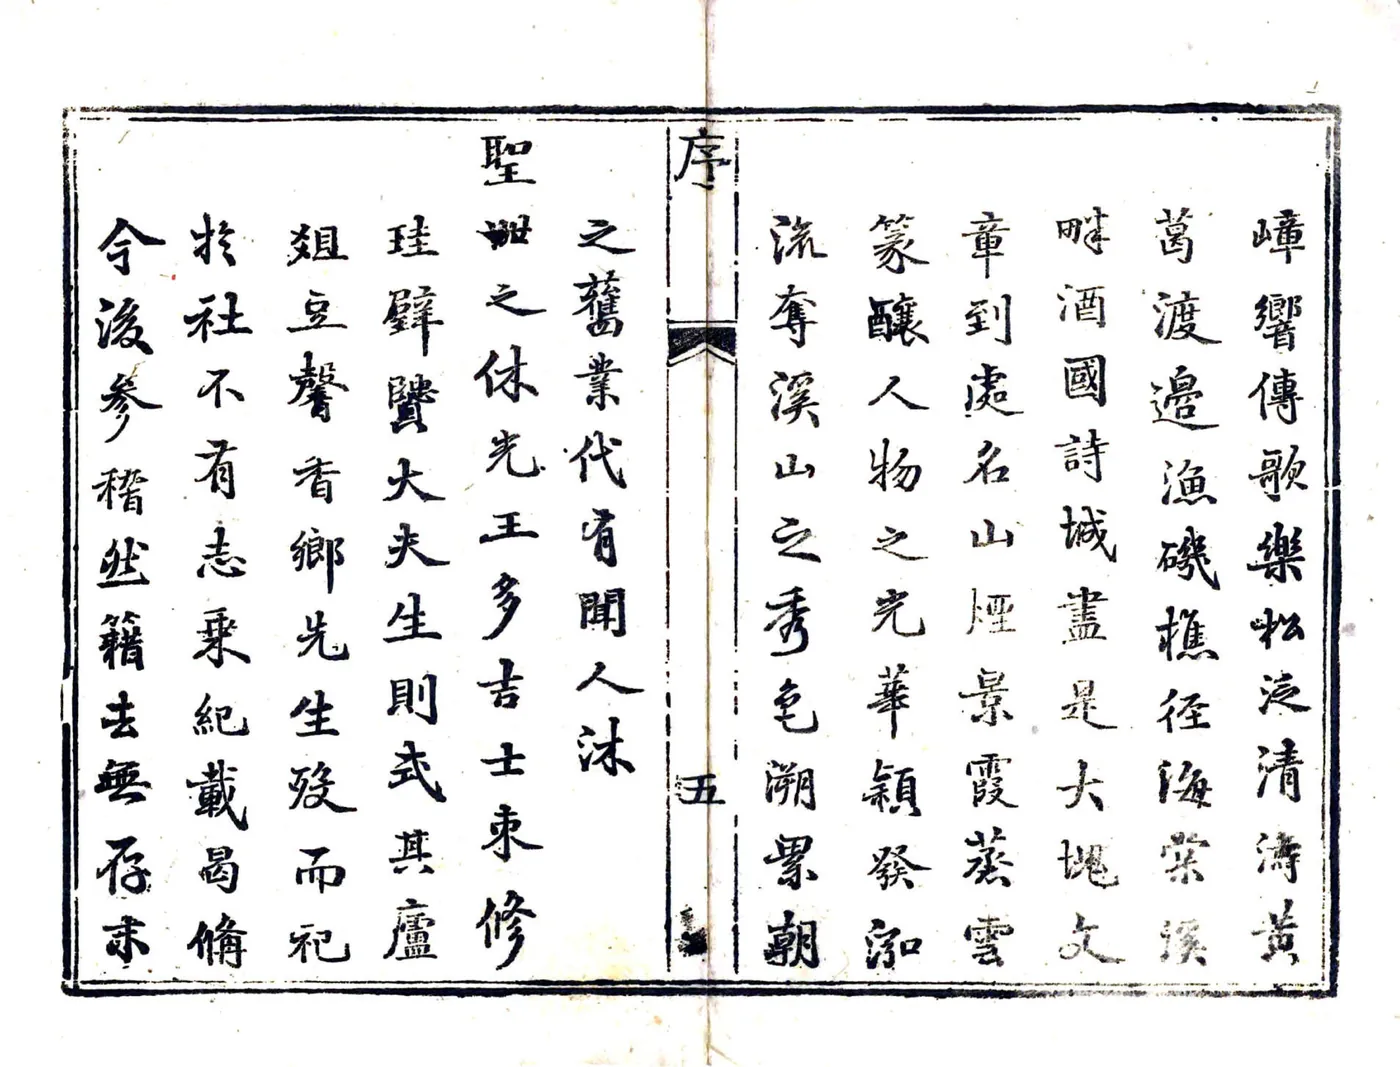 嶂響傳歌樂松泛清濤黃
葛渡邉漁磯樵徑海棠溪
畔酒國詩城盡是大塊文
章到處名山煙景霞蒸雲
篆釀人物之光華穎發泓
流奪溪山之秀色溯累朝
序
五
之舊業代有聞人沐
聖世之休光王多吉士束修
珪璧贒大夫生則式其廬
俎豆馨香鄉先生歿而祀
扵社不有志乘紀載曷備
今後參稽然籍去無存未